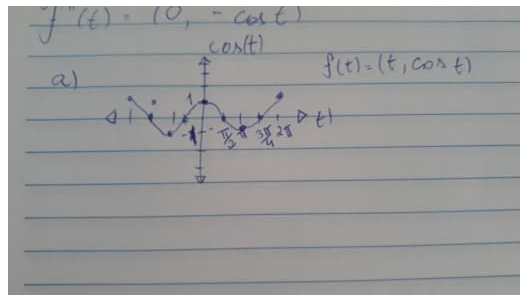 f''(t) = (0, -cos t)
cos(t)
a)
f(t) = (t, cos t)
1
-1
π/2 π 3π/4 2π
t